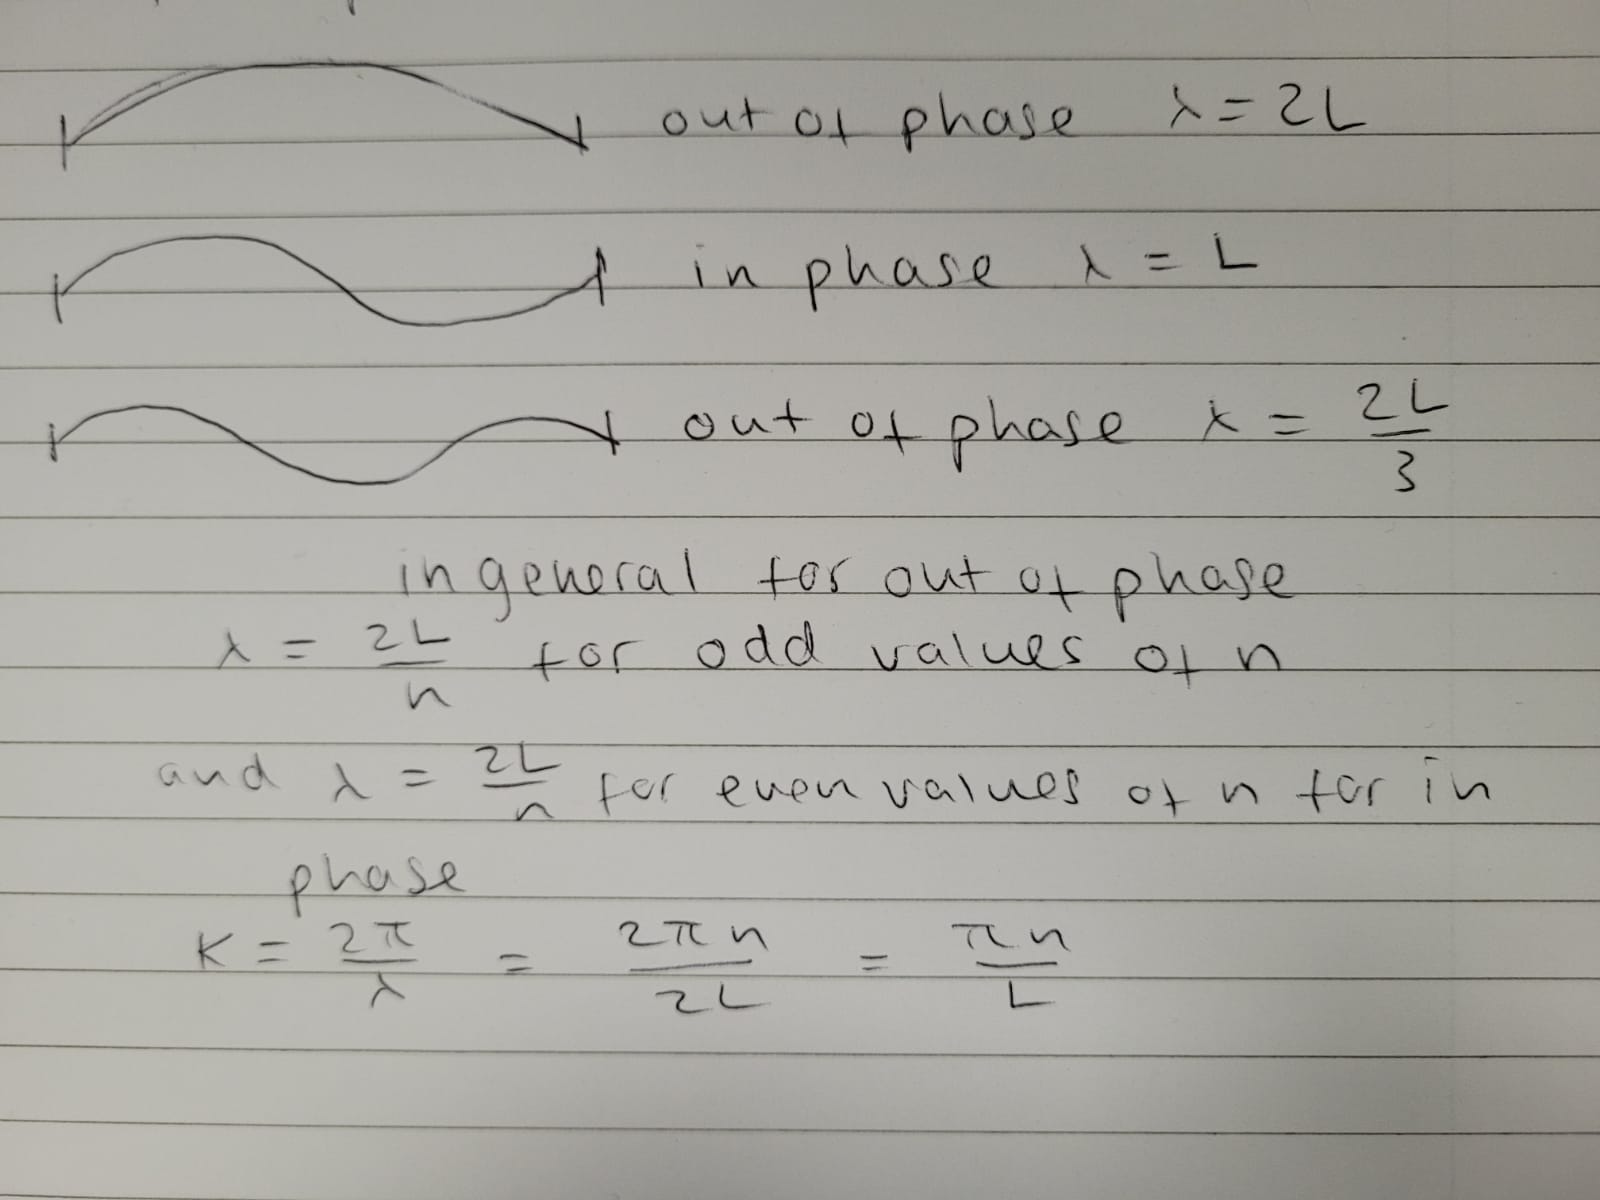 out of phase λ = 2L
in phase λ = L
out of phase λ = 2L/3
in general for out of phase
λ = 2L/n for odd values of n
and λ = 2L/n for even values of n for in
phase
K = 2π/λ = 2πn/2L = πn/L